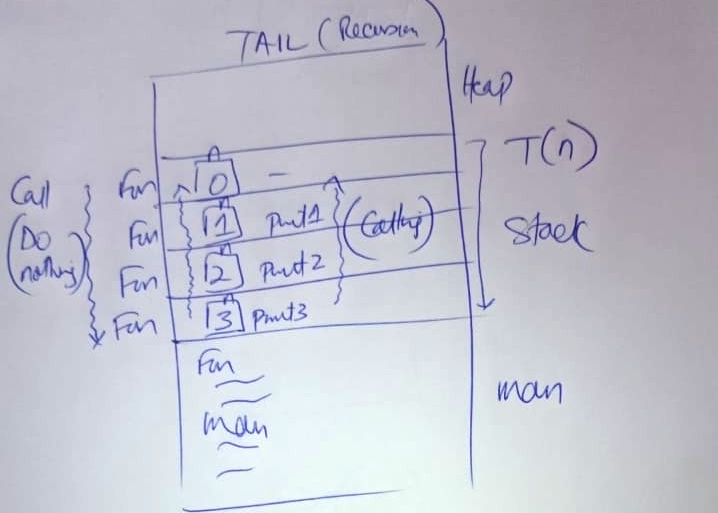 TAIL (Recursion)
Heap
T(n)
Stack
Call
(Do
nothing)
Fun n 0 -
Fun n 1 Print 1 (Calling)
Fun n 2 Print 2
Fun n 3 Print 3
Fun
main
main